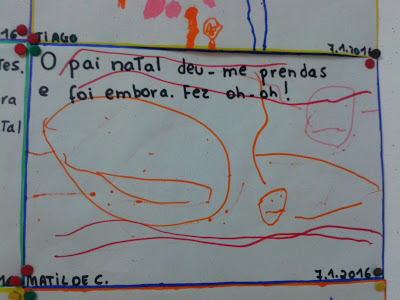 16
TIAGO
7.1.2016
tes.
O pai natal deu-me prendas
ra
e foi embora. Fez oh-oh!
tal
16
MATILDE C.
7.1.2016